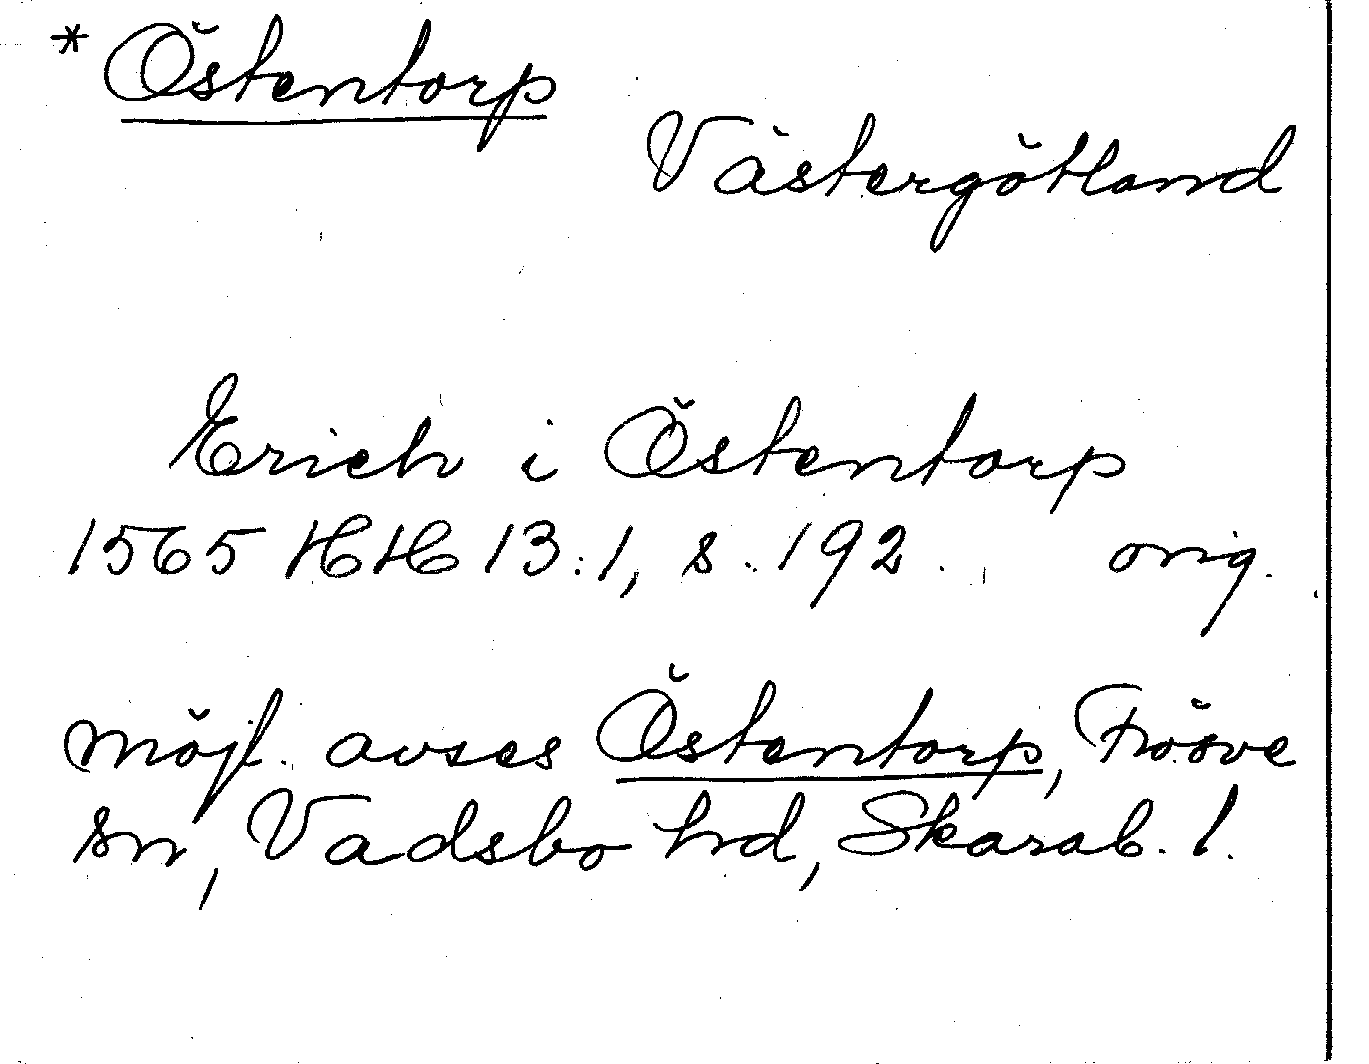 * Östentorp
Västergötland
Erich i Östentorp
1565 HH 13:1, s. 192. orig.
möjl. avses Östentorp, Flistad
sn, Vadsbo hd, Skarab. l.